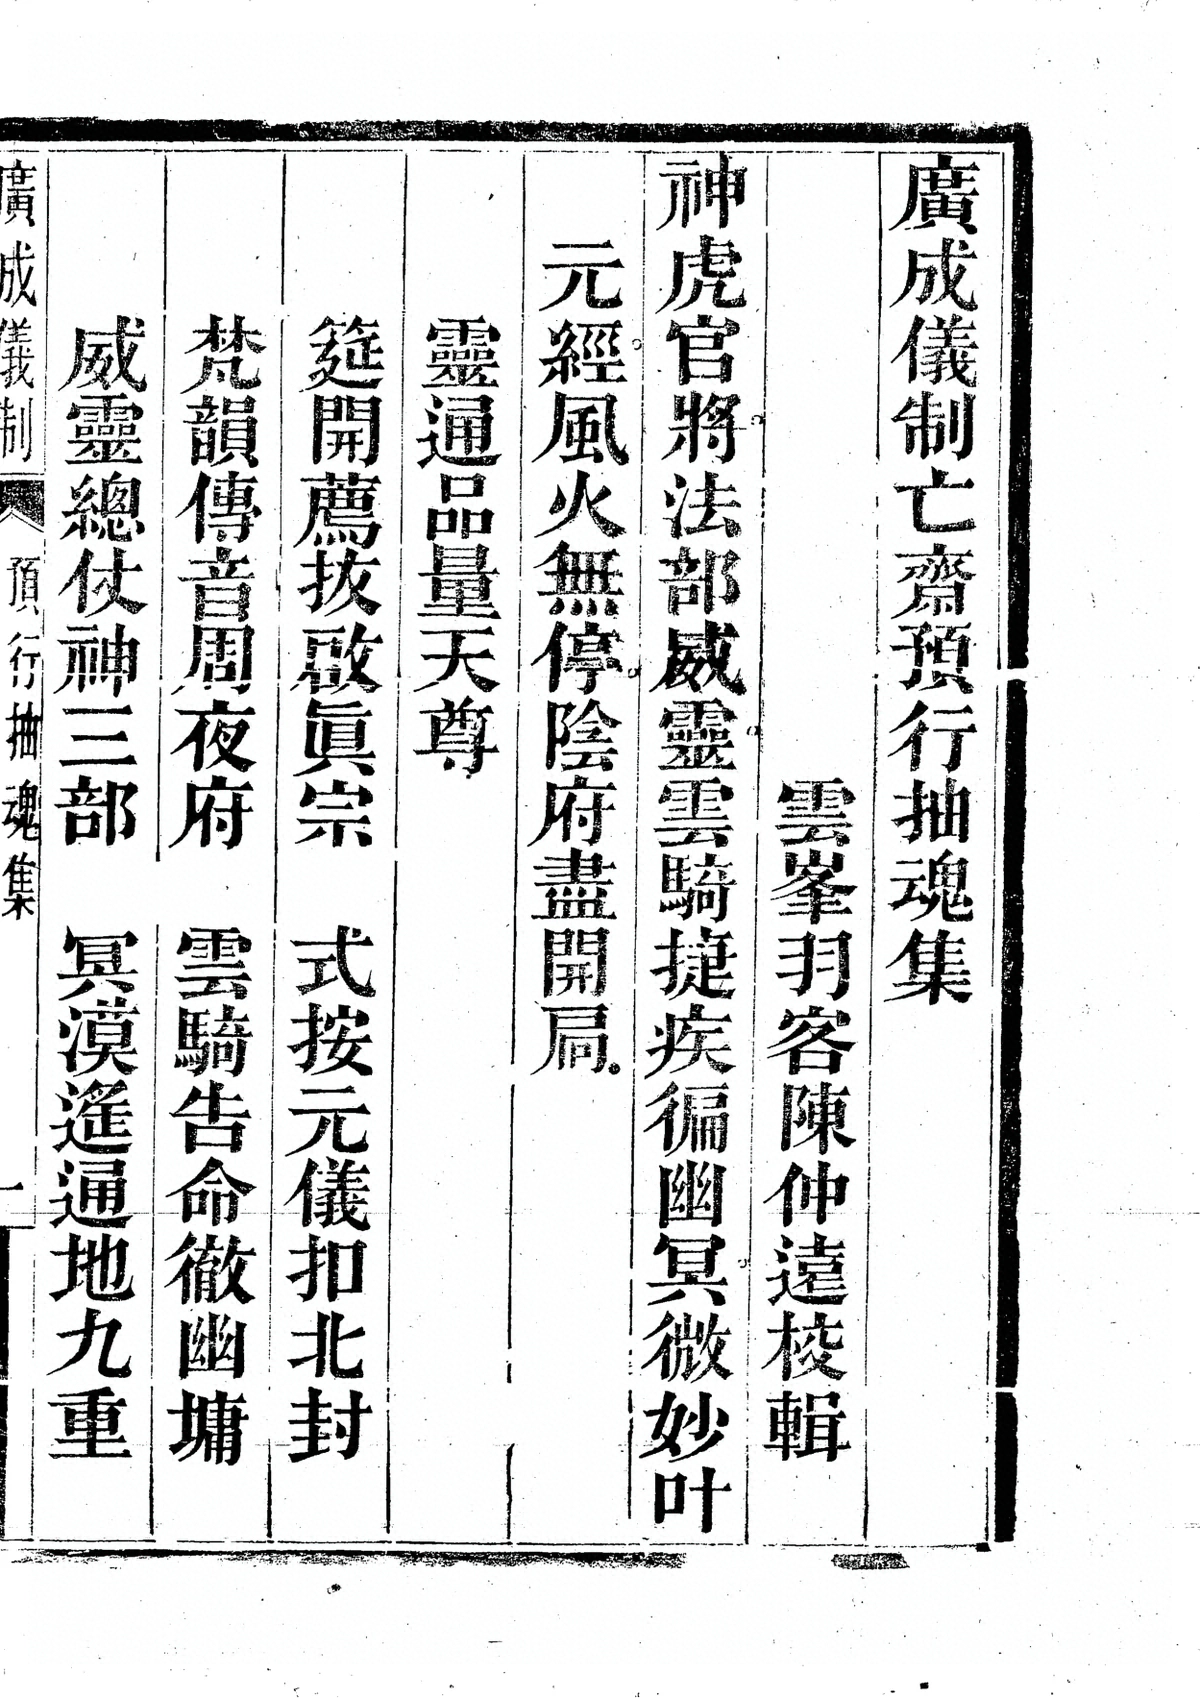 廣成儀制亡齋預行抽魂集
雲峯羽客陳仲遠校輯
神虎官將法部威靈雲騎捷疾徧幽冥微妙叶
元經風火無停陰府盡開扃
靈通品量天尊
筵開薦拔啟眞宗　式按元儀扣北封
梵韻傳音周夜府　雲騎告命徹幽墉
威靈總仗神三部　冥漠遙通地九重
廣成儀制　預行抽魂集　一